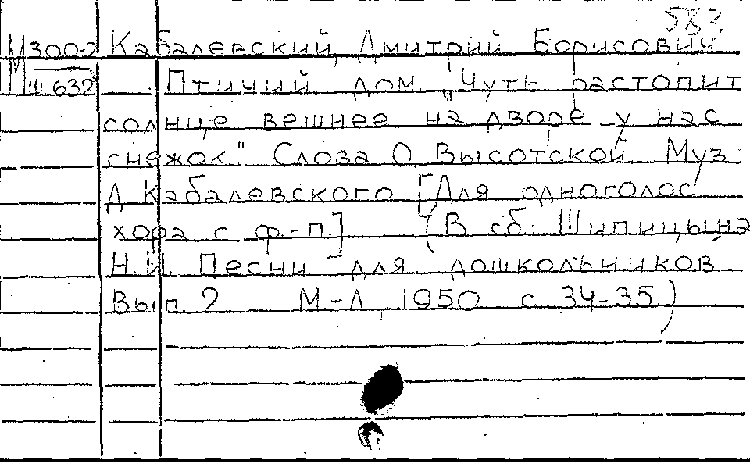 583
М300-2 Кабалевский, Дмитрий Борисович
Ш 632 Птичий дом. "Чуть растопит
солнце вешнее на дворе у нас
снежок". Слова О. Высотской. Муз.
Д. Кабалевского [Для одноголос.
хора с ф-п] (В сб.: Шипицына
Н.И. Песни для дошкольников
Вып. 2 М-Л, 1950 с. 34-35)